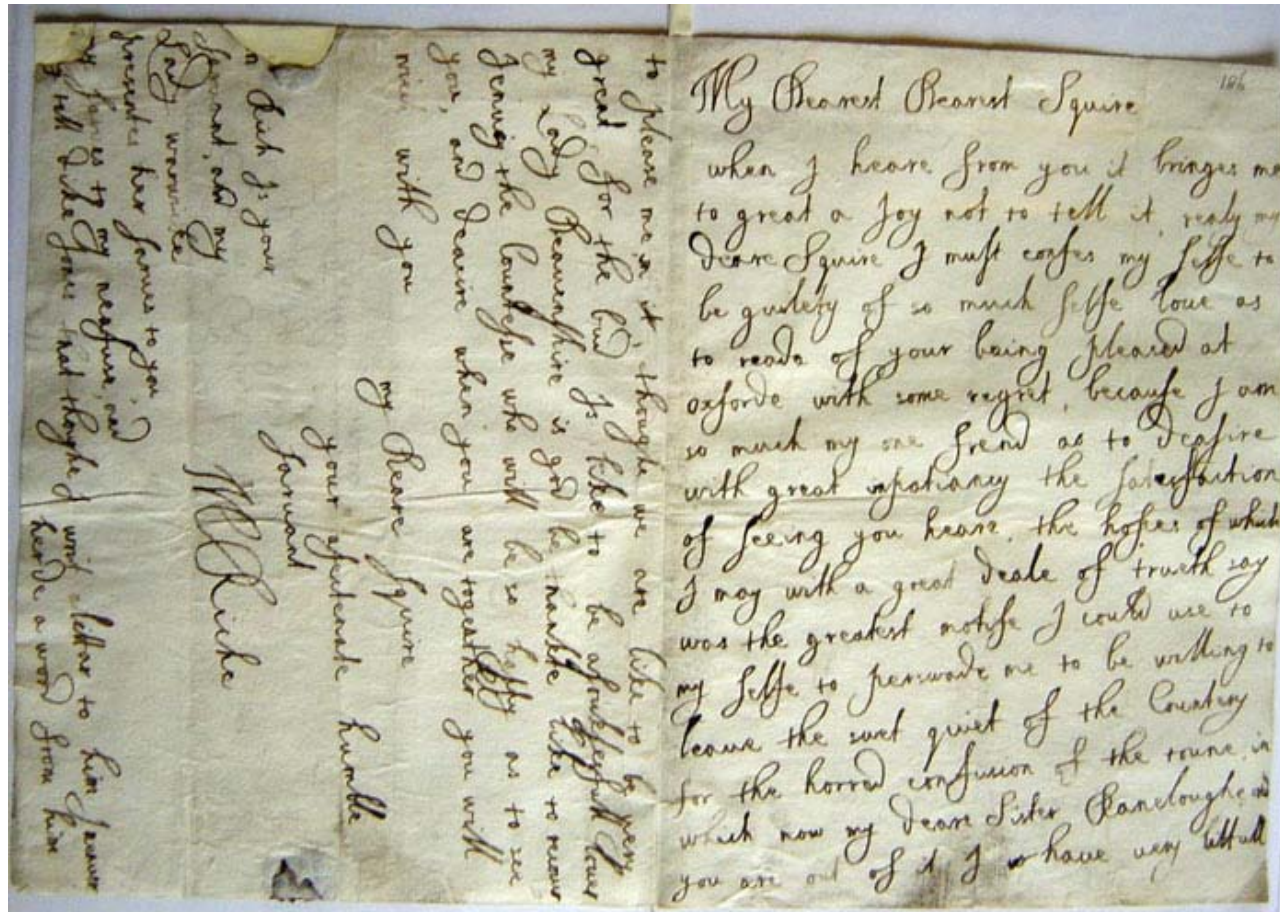 186
My Dearest Dearest Squire
when I heare from you it bringes me
to great a Joy not to tell it, realy my
deare Squire I must confes my selfe to
be guilety of so much selfe love as
to reade of your being pleased at
oxforde with some regret, because I am
so much my one frend as to deasire
with great inpatiancy the satesfaction
of seeing you heare, the hopes of which
I may with a great deale of trueth say
was the greatest motife I could use to
my selfe to perswade me to be willing to
leave the swet quiet of the Countery
for the horred confusion of the toune, in
which now my deare Sister Raneloughe and
you are out of it I have very littull
to please me in it, thoughe we are like to be very
great for the bud Is like to be
my Lady Deavenshire is god be thankte like to recover
Jening the Countesse who will be so happy as to see
you, and deasire when you are togeather you will
with you
my Deare Squire
your afectenate humble
Sarvant
MRiche
Rich Is your
Sarvant, and my
Lady warwicke
presentes her sarves to you,
my sarves to my neafuse, and
tell Dike Jones that thoughe I writ a letter to him I never
herde a word from him